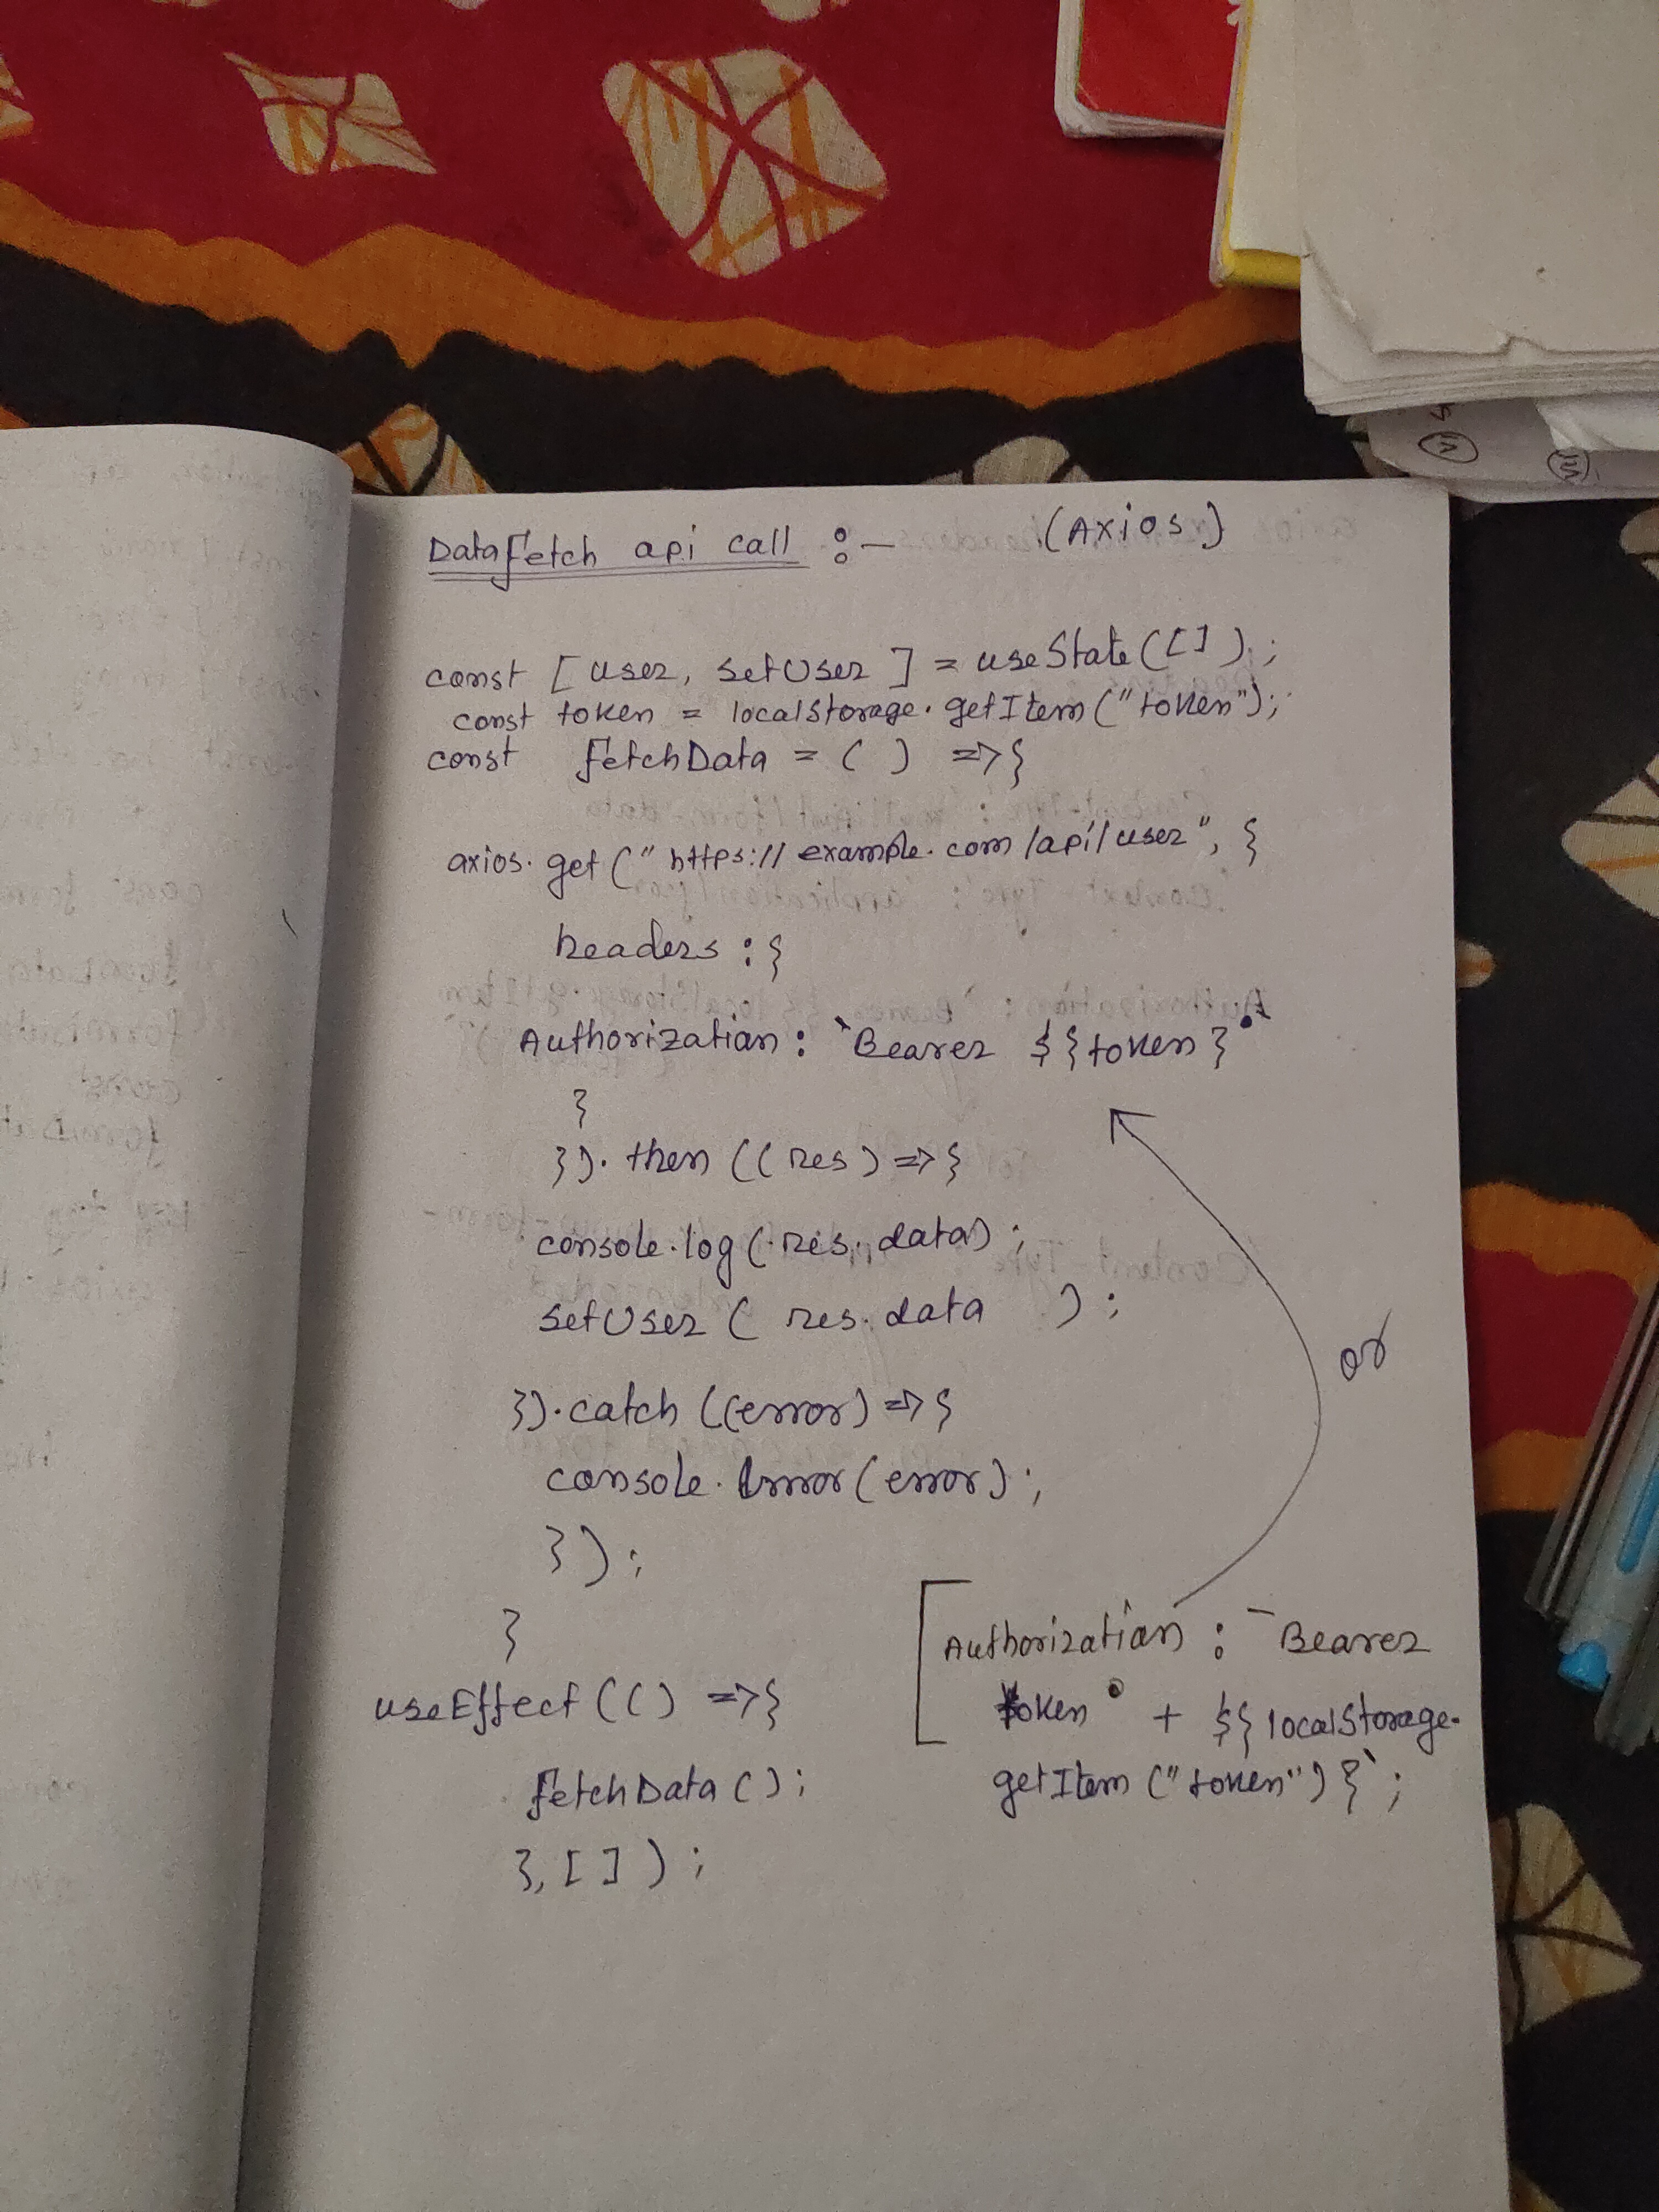 Data fetch api call :- (Axios)
const [user, setUser] = useState([]);
const token = localStorage.getItem("token");
const fetchData = () => {
axios.get("https://example.com/api/user", {
headers : {
Authorization : `Bearer ${token}`
}
}).then((res) => {
console.log(res.data);
setUser(res.data);
}).catch((error) => {
console.error(error);
});
}
useEffect(() => {
fetchData();
},[]);
or
Authorization : `Bearer
token + ${localStorage.
getItem("token")}`;
VI
VII